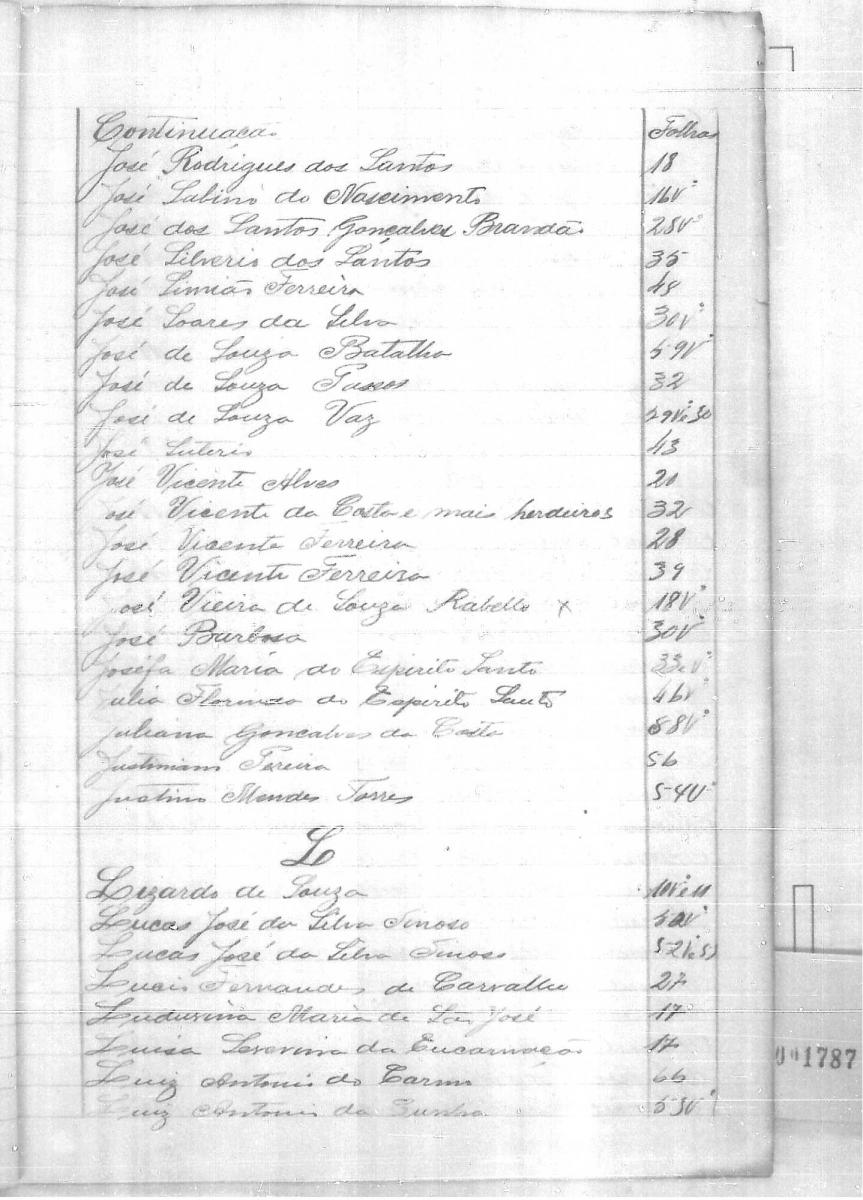 Continuação Folhas
José Rodrigues dos Santos 18
José Sabino do Nascimento 16vº
José dos Santos Gonçalves Brandão 28vº
José Silverio dos Santos 35
José Simeão Ferreira 48
José Soares da Silva 30vº
José de Souza Batalha 59vº
José de Souza Passos 32
José de Souza Vaz 29vº e 30
José 43
José Vicente Alves 20
José Vicente da Costa e mais herdeiros 32
José Vicente Ferreira 28
José Vicente Ferreira 39
José Vieira de Souza Rabello x 18vº
José Barbosa 30vº
Josefa Maria do Espirito Santo 33vº
Julia Florinda do Espirito Santo 46vº
Juliana Gonçalves da Costa 58vº
Justiniano Pereira 56
Justino Mendes Torres 54vº
L
Lizardo de Souza 10vº e 11
Lucas José da Silva Tinoso
Lucas José da Silva Tinoso 52vº e 53
Lucio Fernandes de Carvalho 27
Luduvina Maria de São José 17
Luisa Severina da Encarnação 17
Luiz Antonio do Carmo 66
Luiz Antonio da Cunha 53vº
001787